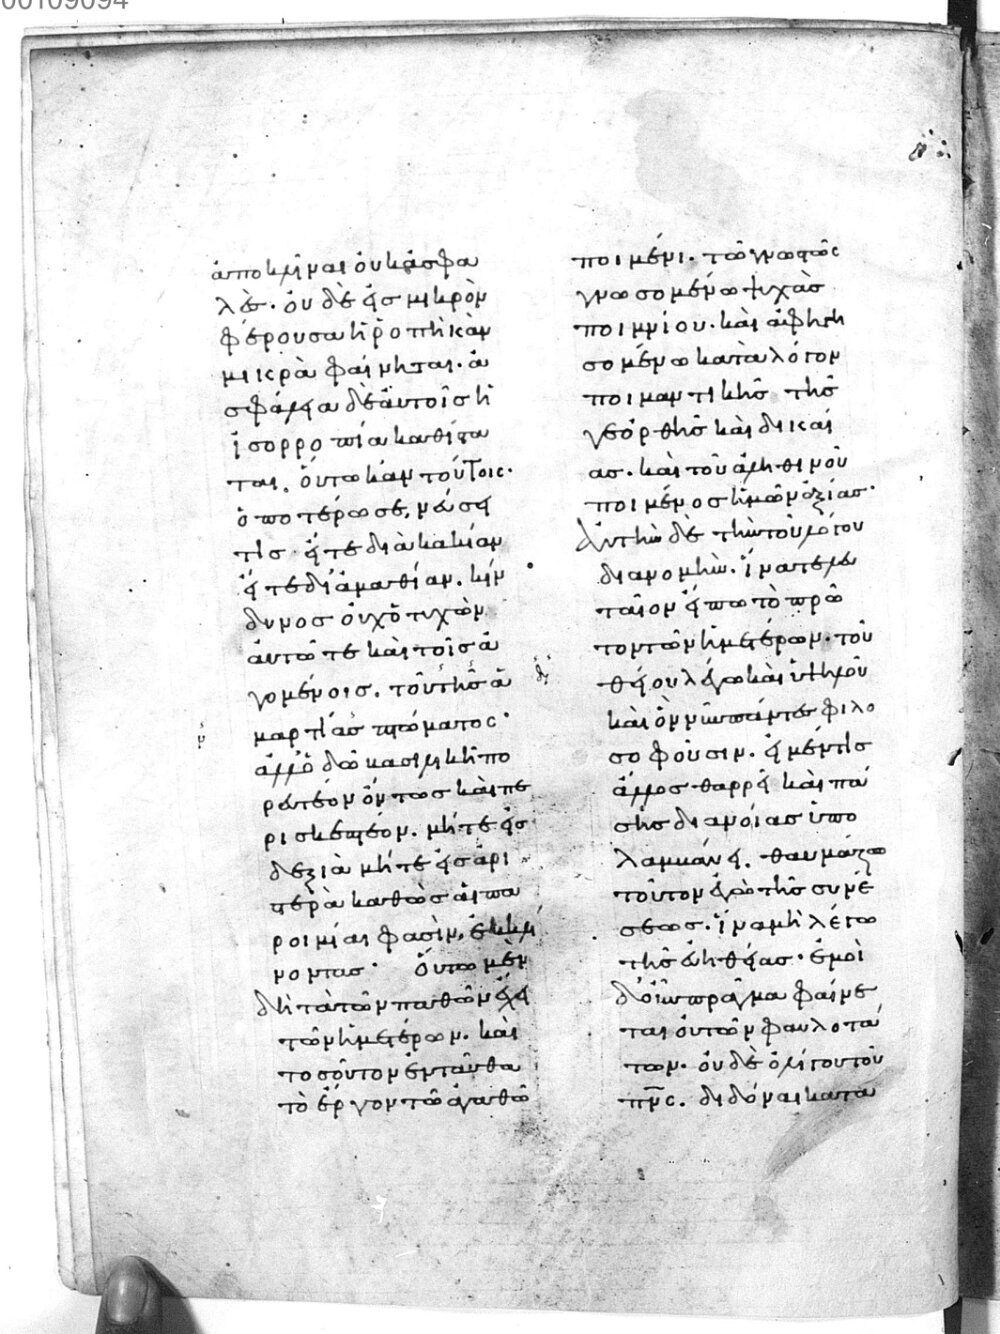 00109094
ἀποκλῖναι οὐκ ἀσφα
λὲς· οὐδὲ εἰς μικρὸν
φέρουσα ἡ ῥοπὴ κἂν
μικρὰ φαίνηται· ἀ
σφάλεια δὲ αὐτοῖς ἡ
ἰσορροπία καθίστα
ται. οὕτω κἀν τούτοις·
ὁποτέρωσε, νεύσει
τίς· εἴτε διὰ κακίαν
εἴτε δι' ἀμαθίαν. κίν
δυνος οὐχ ὁ τυχὼν
αὐτῶ τε καὶ τοῖς ἀ
γομένοις. τοῦ τῆς ἁ
μαρτίας πτώματος·
ἀλλ' ὁδῶ βασιλικῆ πο
ρευτέον ὄντως καὶ πε
ρισκεπτέον. μήτε εἰς
δεξιὰ μήτε εἰς ἀρι
στερὰ καθὼς αἱ πα
ροιμίαι φασὶν, ἐκκλί
νοντας· Οὕτω μὲν
δὴ τὰ τῶν παθῶν ἔχει
τῶν ἡμετέρων. καὶ
τοσοῦτον ἐνταῦθα
τὸ ἔργον τῶ ἀγαθῶ
ποιμένι. τῶ γνωστῶς
γνωσομένω ψυχὰς
ποιμνίου. καὶ ἀφηγη
σομένω κατὰ λόγον
ποιμαντικῆς τῆς
γε ὀρθῆς καὶ δικαί
ας. καὶ τοῦ ἀληθινοῦ
ποιμένος ἡμῶν ἀξίας·
Αὐτὴν δὲ τὴν τοῦ λόγου
διανομὴν. ἵνα τελευ
ταῖον εἴπω τὸ πρῶ
τον τῶν ἡμετέρων. τοῦ
θείου λέγω καὶ ὑψηλοῦ
καὶ ὃν νῦν πάντες φιλο
σοφοῦσιν. εἰ μέν τις
ἄλλος θαρρεῖ καὶ πά
σης διανοίας ὑπο
λαμβάνει. θαυμάζω
τοῦτον ἐγὼ τῆς συνέ
σεως. ἵνα μὴ λέγω
τῆς εὐηθείας· ἐμοὶ
δ' οὖν πρᾶγμα φαίνε
ται οὐ τῶν φαυλοτά
των. οὐδὲ ὀλίγου τοῦ
πν̅ς. διδόναι κατὰ